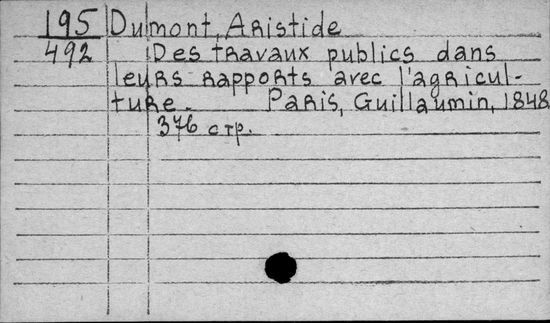 195 Dumont, Aristide
492 Des travaux publics dans
leurs rapports avec l'agricul-
ture. Paris, Guillaumin, 1848.
376 стр.